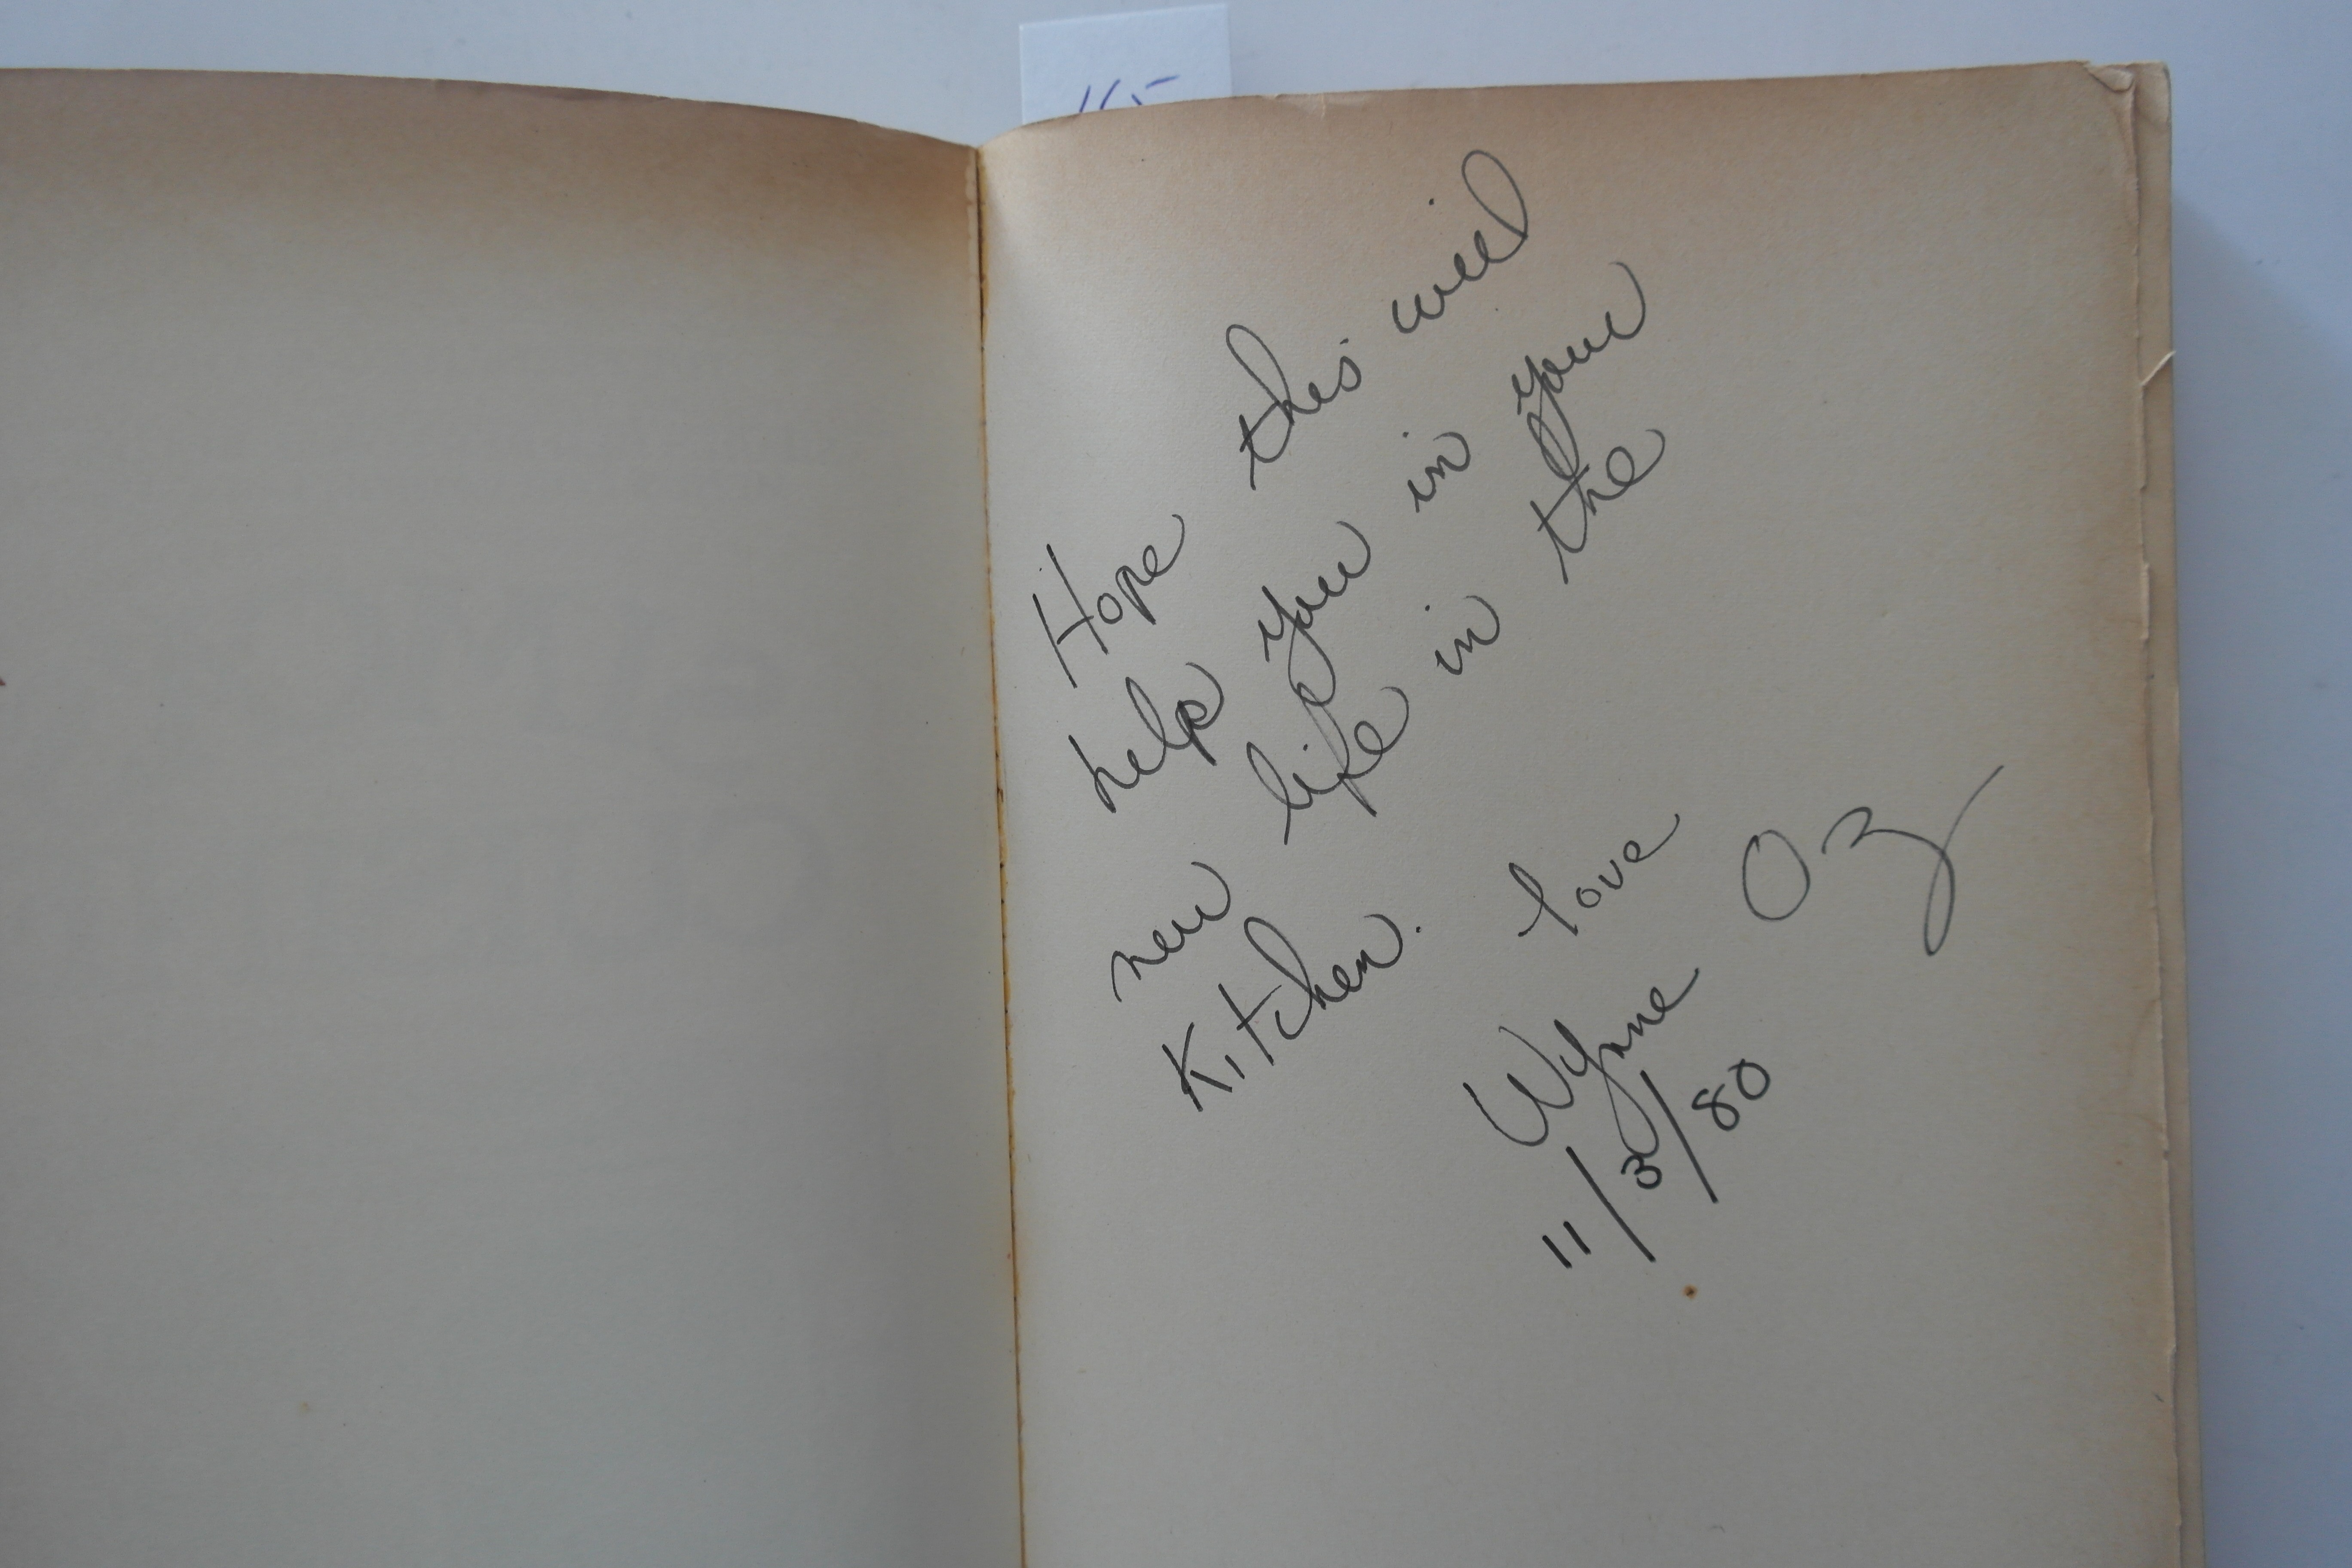 Hope this will
help you in your
new life in the
Kitchen.
love
Wynne Oz
11/3/80